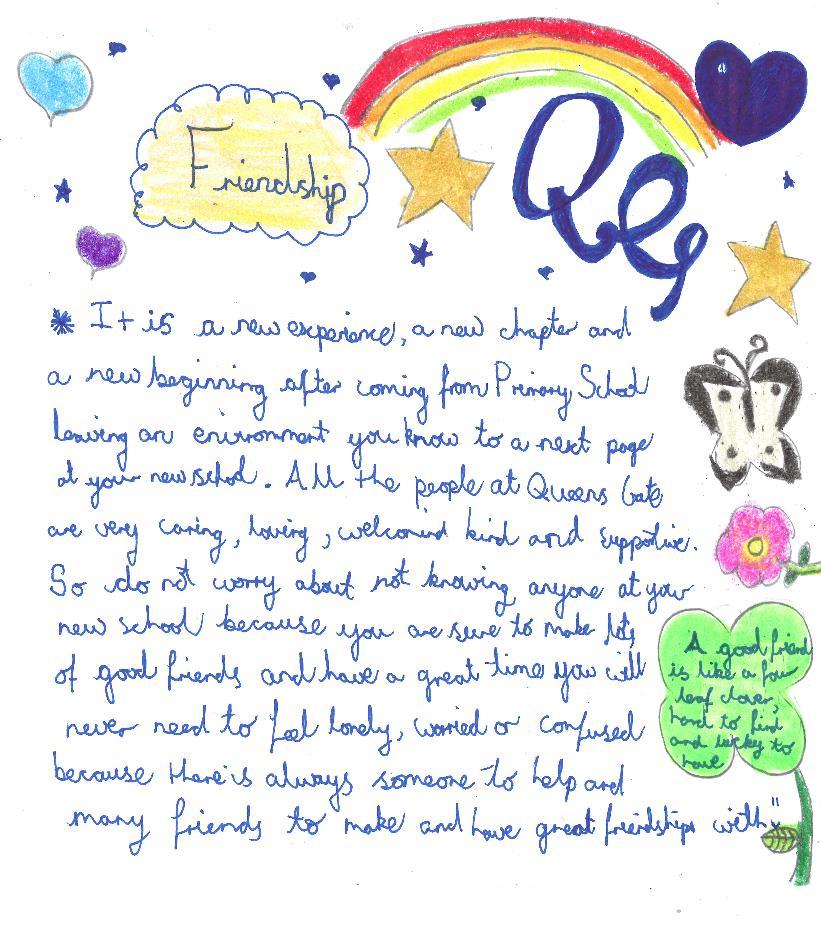 Friendship
QG
* It is a new experience, a new chapter and
a new beginning after coming from Primary School
leaving an environment you know to a next page
at your new school. All the people at Queens Gate
are very caring, loving, welcomind kind and supportive.
So do not worry about not knowing anyone at your
new school because you are sure to make lots
of good friends and have a great time you will
never need to feel lonely, worried or confused
because there is always someone to help and
many friends to make and have great friendships with"
A good friend
is like a four
leaf clover,
hard to find
and lucky to
have